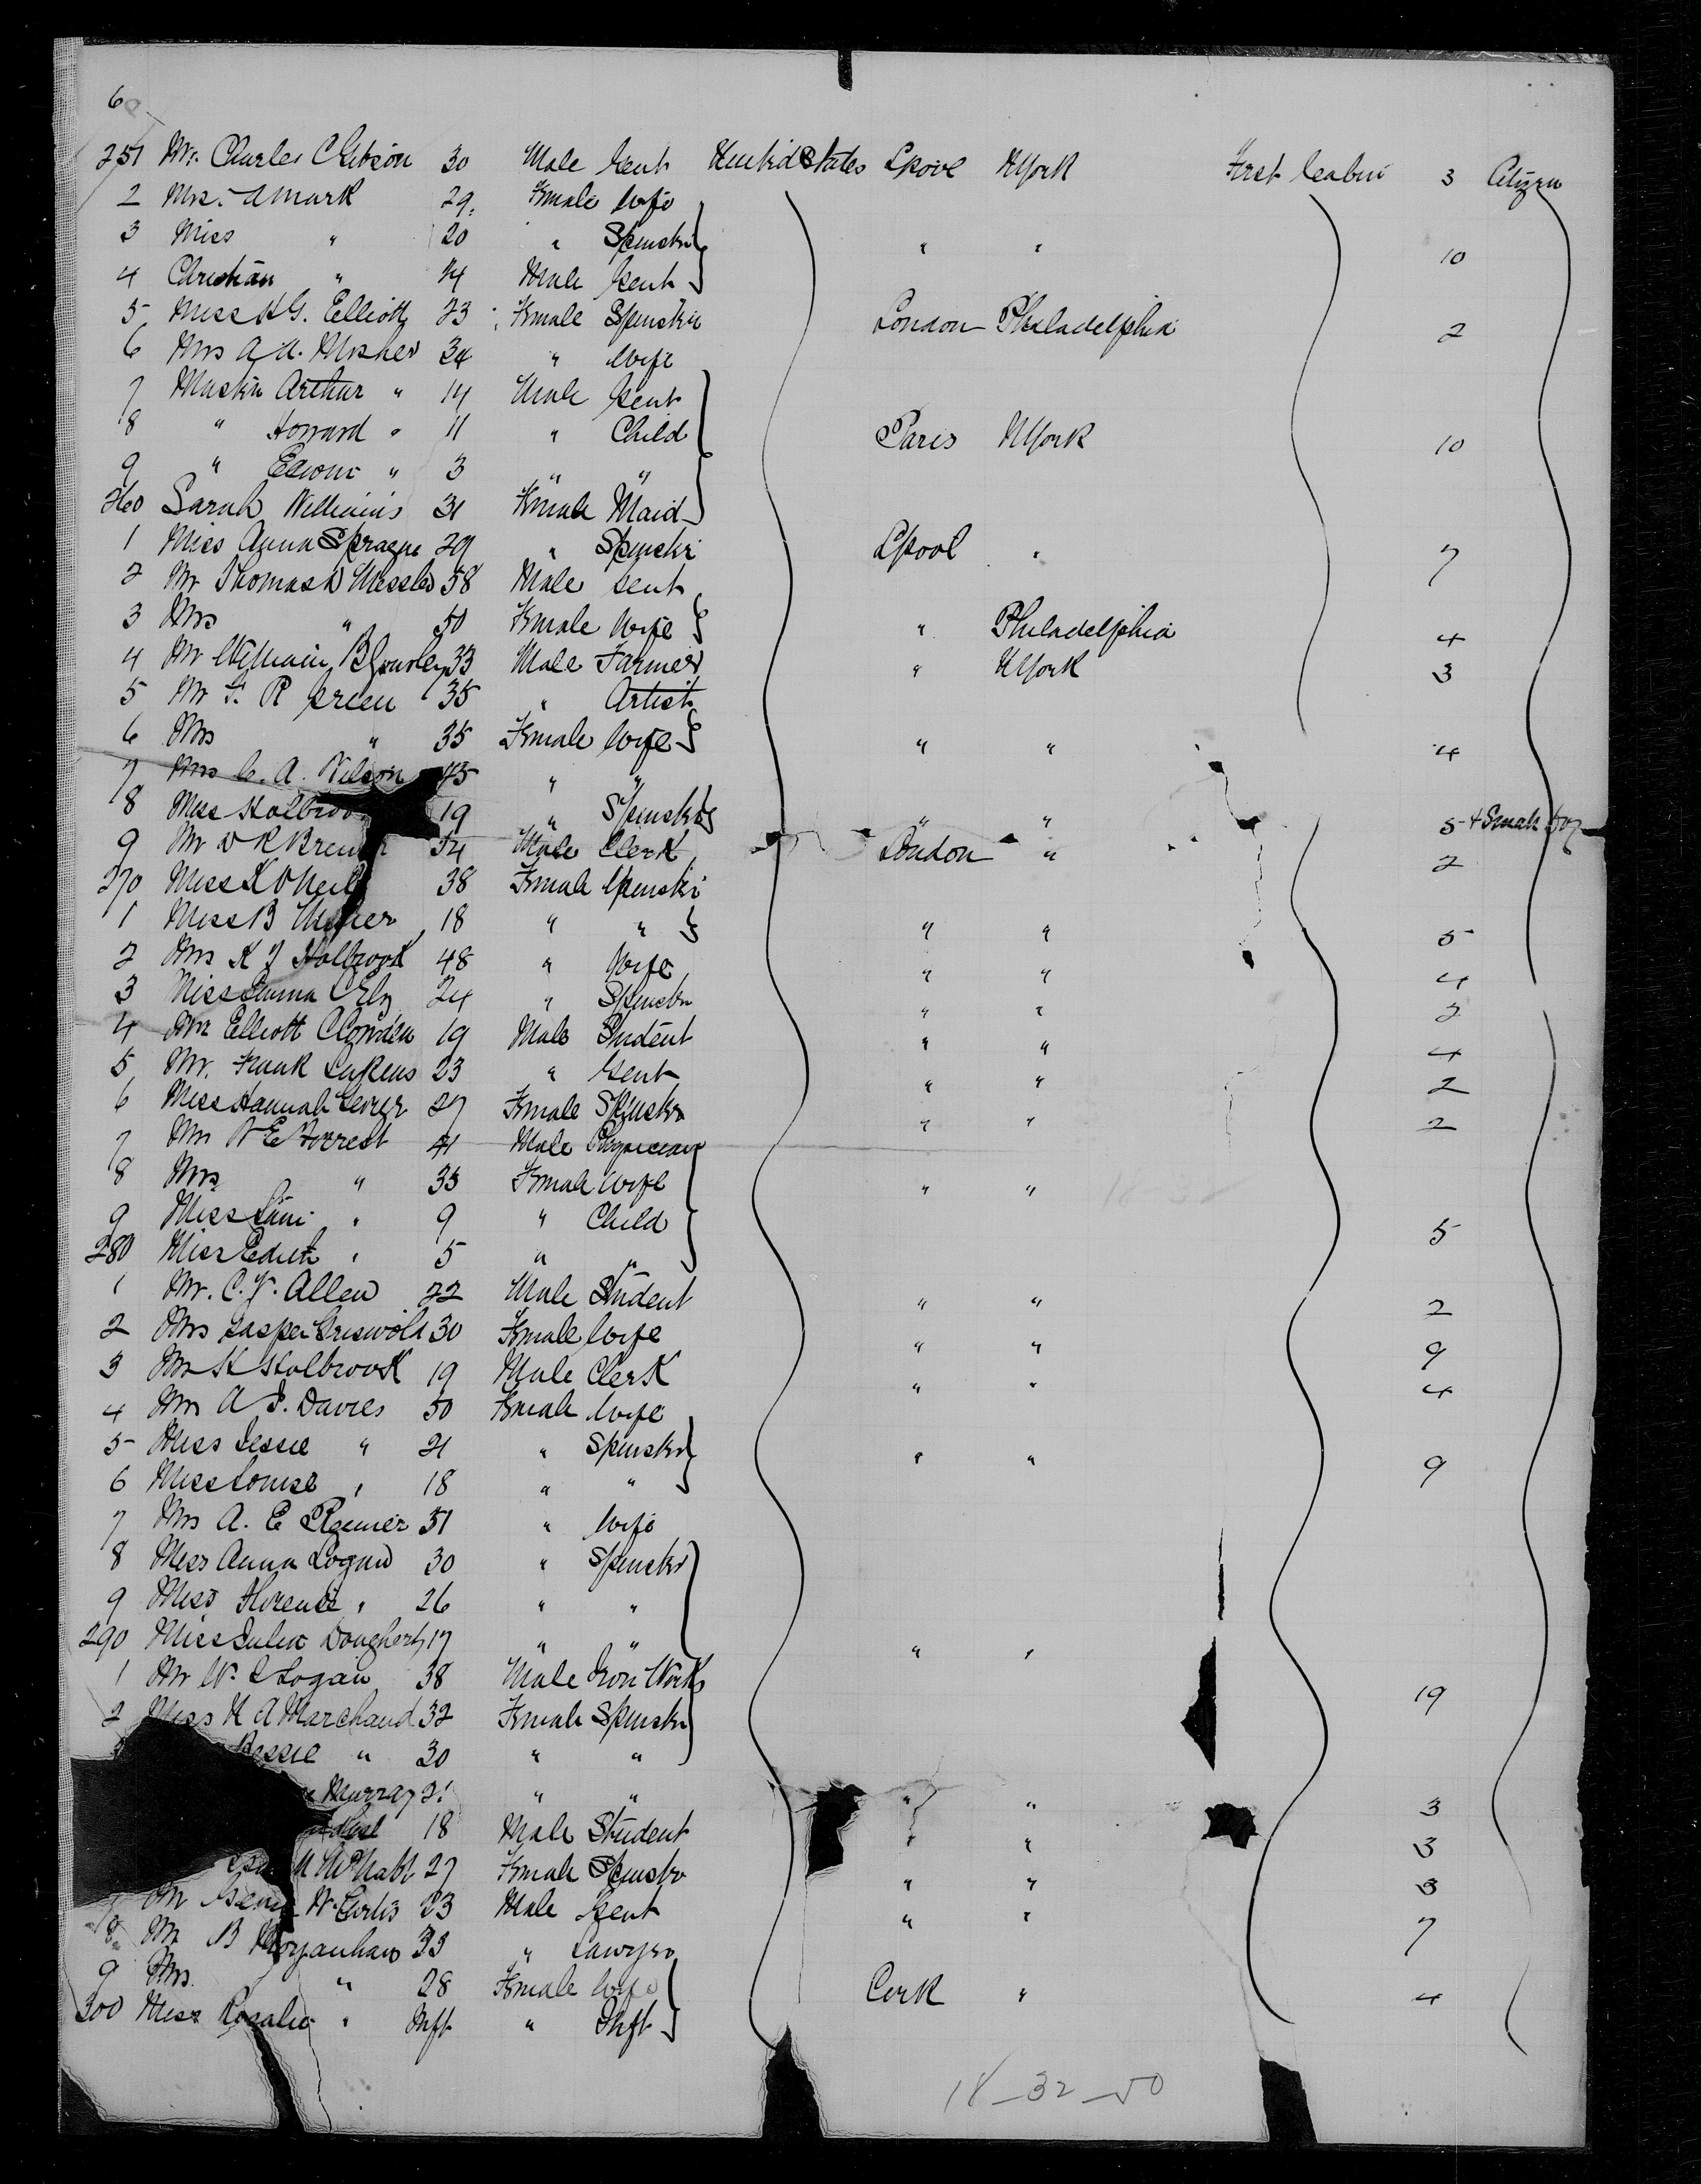 6
251 Mr. Charles C Gibson 30 Male Gent United States Lpool NYork First Cabin 3 Citizen
2 Mrs. Amark 29 Female Wife
3 Miss " 20 " Spinster " " 10
4 Christian " 14 Male Gent
5 Miss H G. Elliott 23 Female Spinster London Philadelphia 2
6 Mrs A. A. Mosher 34 " Wife
7 Master Arthur " 14 Male Gent
8 " Howard " 11 " Child Paris NYork 10
9 " Edwin " 3 " "
260 Sarah Williams 31 Female Maid
1 Miss Anna Sprague 29 " Spinster Lpool " 7
2 Mr Thomas D Messler 58 Male Gent
3 Mrs " 50 Female Wife " Philadelphia 4
4 Mr William B 33 Male Farmer " NYork 3
5 Mr F. R Green 35 " Artist
6 Mrs " 35 Female Wife " " 4
7 Mrs C. A. Wilson 45 " "
8 Miss Holbroo 19 " Spinster " " 5 + Small Boy
9 Mr D R 34 Male Clerk London " 2
270 Miss K O'Neil 38 Female Spinster
1 Miss B 18 " " " " 5
2 Mrs K Holbrook 48 " Wife " " 4
3 Miss Emma C Ely 24 " Spinster " " 2
4 Mr Elliott C Cowden 19 Male Student " " 4
5 Mr. Frank Lukens 23 " Gent " " 2
6 Miss Hannah 27 Female Spinster " " 2
7 Mr W E Forrest 41 Male Physician
8 Mrs " 35 Female Wife " "
9 Miss " 9 " Child 5
280 Miss Edith " 5 " "
1 Mr. C. V. Allen 22 Male Student " " 2
2 Mrs Jasper Griswold 30 Female Wife " " 9
3 Mr H Holbrook 19 Male Clerk " " 4
4 Mrs A S. Davies 50 Female Wife
5 Miss Jessie " 21 " Spinster " " 9
6 Miss Louise " 18 " "
7 Mrs A. E 51 " Wife
8 Miss Anna Logan 30 " Spinster
9 Miss Florence " 26 " "
290 Miss Julia Dougherty 17 " " " "
1 Mr W. Logan 38 Male Iron Works 19
2 Miss K A Marchand 32 Female Spinster
Bessie " 30 " "
Murray " " " " 3
18 Male Student " " 3
McNabb 27 Female Spinster " " 3
Mr George W. Curtis 23 Male Gent " " 7
8 Mr B 33 " Lawyer
9 Mrs. " 28 Female Wife Cork " 4
300 Miss Rosalie " Inft " Inft
18 _ 32 _ 50